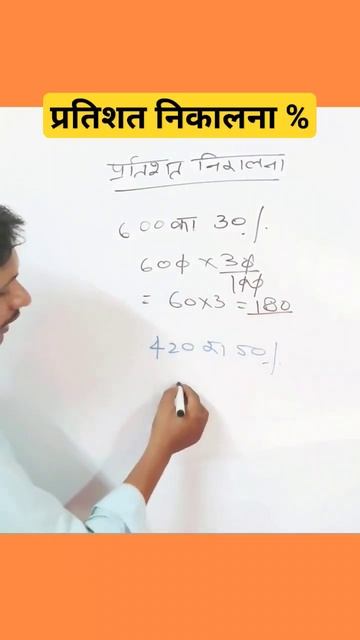 प्रतिशत निकालना %
प्रतिशत निकालना
600 का 30%
600 × 30
100
= 60×3 = 180
420 का 50%